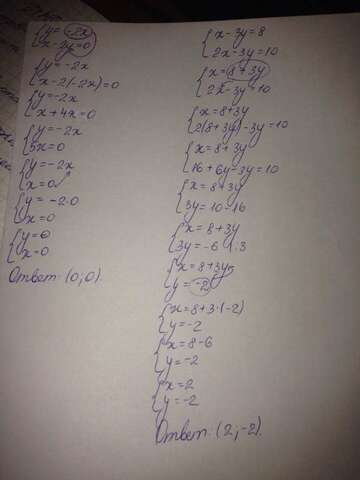 {y = -2x
x - 2y = 0
{y = -2x
x - 2(-2x) = 0
{y = -2x
x + 4x = 0
{y = -2x
5x = 0
{y = -2x
x = 0
{y = -2·0
x = 0
{y = 0
x = 0
Ответ: (0; 0).
{x - 3y = 8
2x - 3y = 10
{x = 8 + 3y
2x - 3y = 10
{x = 8 + 3y
2(8 + 3y) - 3y = 10
{x = 8 + 3y
16 + 6y - 3y = 10
{x = 8 + 3y
3y = 10 - 16
{x = 8 + 3y
3y = -6 | :3
{x = 8 + 3y
y = -2
{x = 8 + 3·(-2)
y = -2
{x = 8 - 6
y = -2
{x = 2
y = -2
Ответ: (2; -2).